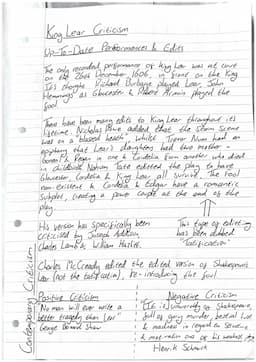 King Lear Criticism
Up-To-Date Performances & Edits
The only recorded performance of King Lear was at court
on the 26th December 1606, in front on the King.
It's thought Richard Burbage played Lear, John
Hemmings as Gloucester & Robert Armin played the
fool.
There have been many edits to King Lear throughout its
lifetime. Nicholas Rowe added that the storm scene
was on a blasted heath, whilst Trevor Nunn had an
epiphany that Lear's daughters had two mothers -
Goneril & Regan in one & Cordelia from another who died
in childbirth. Nahum Tate edited the play to have
Gloucester, Cordelia & King Lear all survive. The fool
non-existent & Cordelia & Edgar have a romantic
subplot, creating a power couple at the end of the
play
His version was specifically been
criticised by Joseph Addison,
Charles Lamb & William Hazlitt.
This type of editing
has been dubbed
"Tatification"
Charles McCready edited the edited version of Shakespeare's
Lear (not the tatification), re-introducing the fool
Contemporary Criticism
Positive Criticism
"No man will ever write a
better tragedy than Lear"
George Bernard Shaw
Negative Criticism
"It is of Shakespeare,
full of gory murder, bestial lust
& madness in regard to
& one of his weakest
Henrik